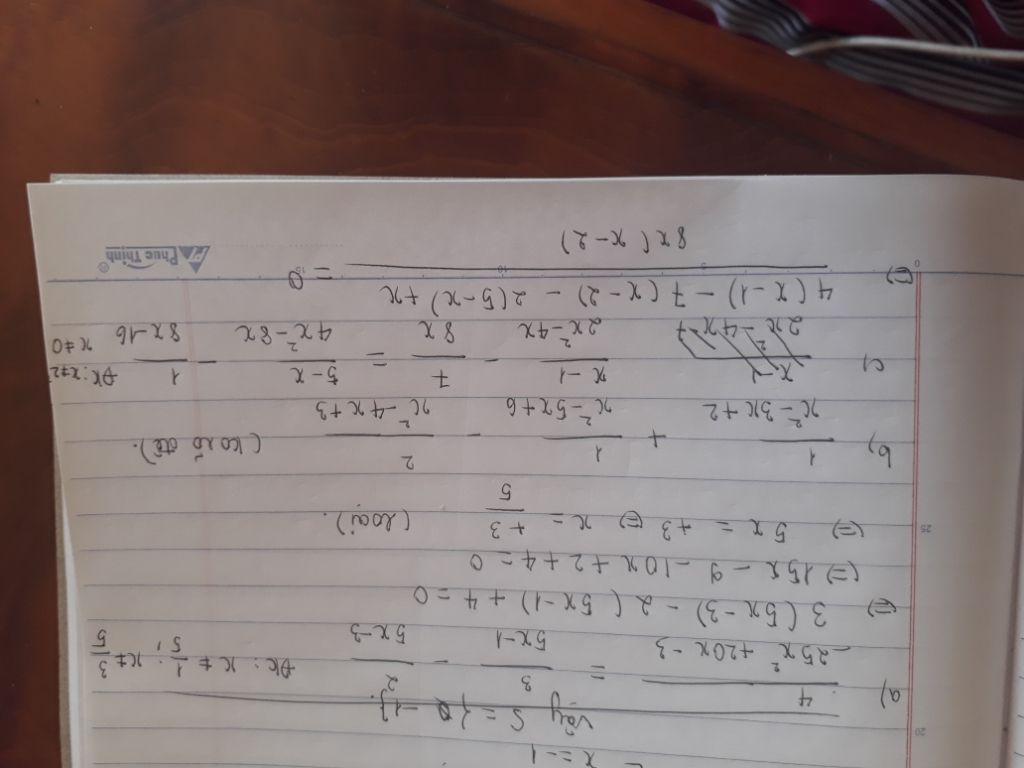 x = -1
Vậy S = { -1 }
a) 4/(-25x² + 20x - 3) = 3/(5x-1) - 2/(5x-3) Đk: x ≠ 1/5; x ≠ 3/5
(=) 3(5x-3) - 2(5x-1) + 4 = 0
(=) 15x - 9 - 10x + 2 + 4 = 0
(=) 5x = +3 (=) x = +3/5 (loại).
b) 1/(x² - 3x + 2) + 1/(x² - 5x + 6) - 2/(x² - 4x + 3) (ko rõ đề).
c) (x-1)/(2x² - 4x) - 7/8x = (5-x)/(4x² - 8x) - 1/(8x-16) Đk: x≠2
x ≠ 0
(=) (4(x-1) - 7(x-2) - 2(5-x) + x)/(8x(x-2)) = 0
Phuc Thinh®
20
25
5
10
15
0